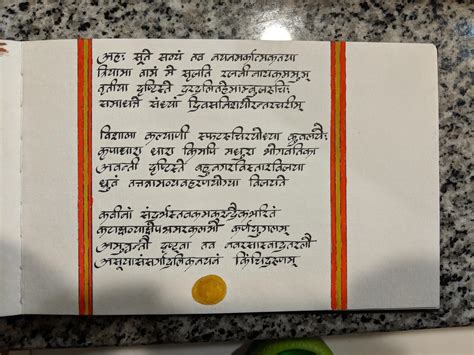 अहः सूते सव्यं तव नयनमर्कात्मकतया
त्रियामा वामं मे सृजति रजनीनायकममुम्
तृतीया दृष्टिस्ते दरदलितहेमाम्बुजरुचिः
समाधत्ते संध्यां दिवसनिशयोरन्तरचरीम्
विशाला कल्याणी स्फुटरुचिरयोध्या कुवलयैः
कृपाधारा धारा किमपि मधुरा भोगवतिका
अवन्ती दृष्टिस्ते बहुनगरविस्तारविजया
ध्रुवं तत्तन्नामव्यवहरणयोग्या विजयते
कवीनां संदर्भस्तबकमकरन्दैकभरितं
कटाक्षव्याक्षेपभ्रमरकलभौ कर्णयुगलम्
अमुञ्चन्तौ दृष्ट्वा तव नवरसास्वादतरलौ
असूयासंसर्गादलिकनयनं किंचिदरुणम्